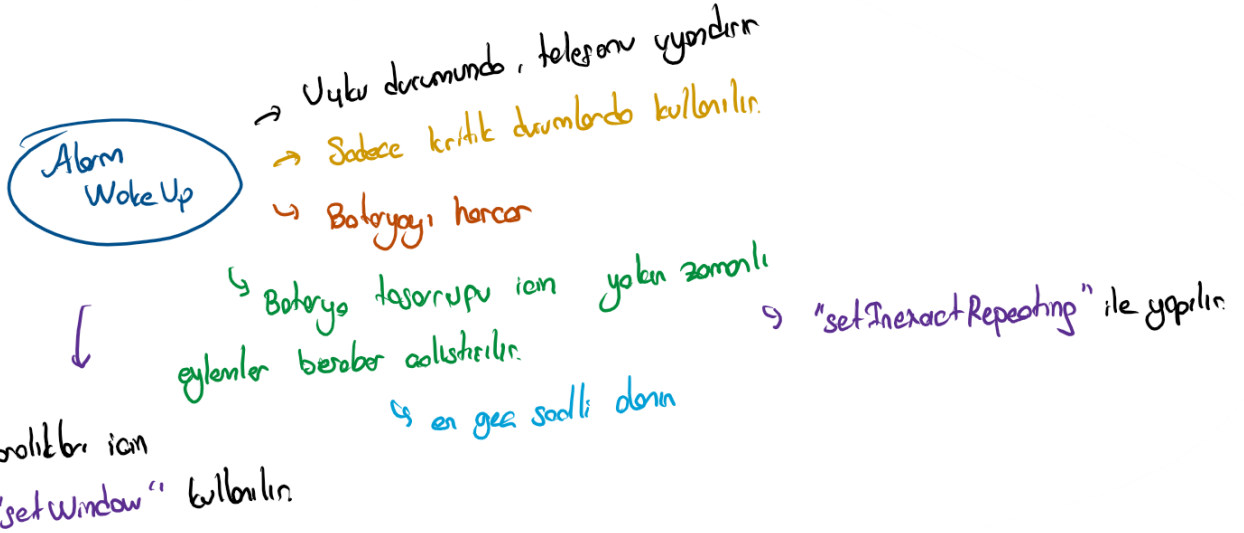 Uyku durumunda, telefonu uyandırır
Alarm
WakeUp
Sadece kritik durumlarda kullanılır.
Bataryayı harcar
Batarya tasarrufu icin yakın zamanlı
eylemler beraber calıstırılır.
"setInexactRepeating" ile yapılır.
en gec saatli olanın
icin
"setWindow" kullanılır.